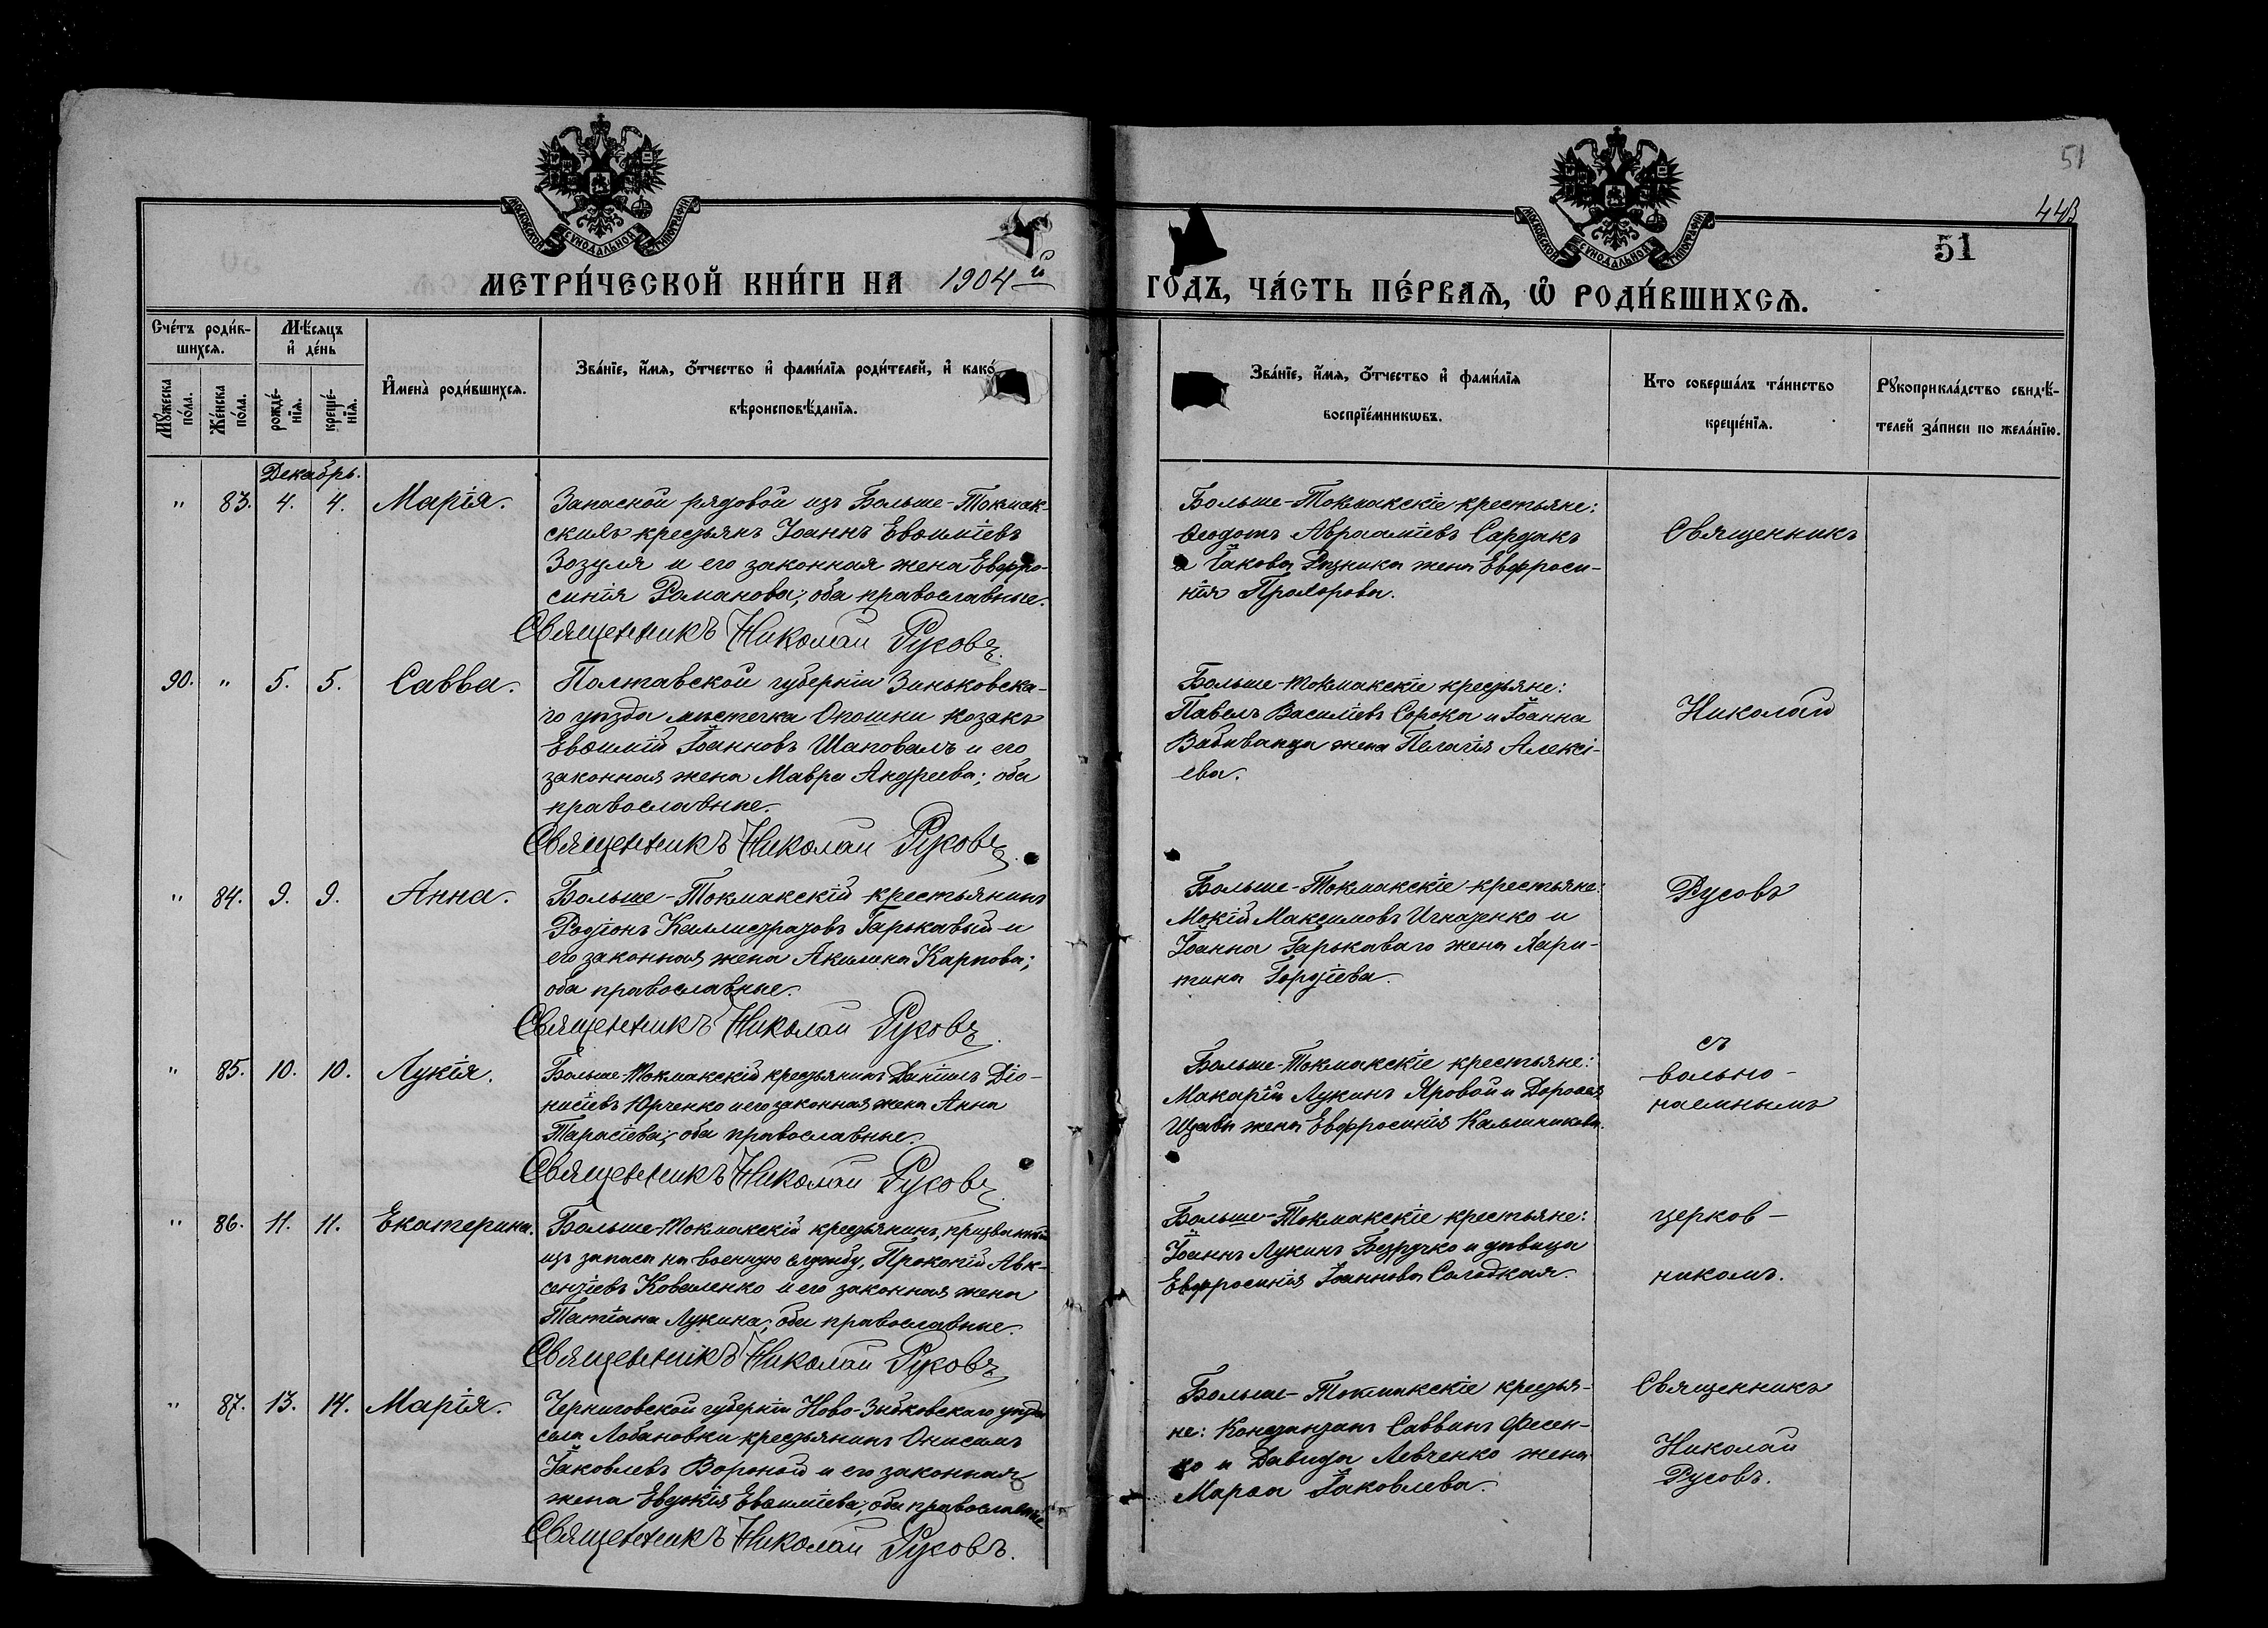 51
443
51
МОСКОВСКОЙ СѴНОДАЛЬНОЙ ТИПОГРАФІИ
МОСКОВСКОЙ СѴНОДАЛЬНОЙ ТИПОГРАФІИ
МЕТРИ́ЧЕСКОЙ КНИ́ГИ НА 1904й
ГО́ДЪ, ЧА́СТЬ ПЕ́РВАѦ, Ѽ РОДИ́ВШИХСѦ.
Сче́тъ роди́в-
шихсѧ.
Мꙋ́жеска
по́ла.
Же́нска
по́ла.
Мѣ́сѧцъ
и҆ де́нь
рожде́-
нїѧ.
креще́-
нїѧ.
И҆мена̀ роди́вшихсѧ.
Зва́нїе, и҆́мѧ, ѻ҆́тчество и҆ фами́лїѧ роди́телей, и҆ како́
вѣроисповѣ́данїѧ.
Зва́нїе, и҆́мѧ, ѻ҆́тчество и҆ фами́лїѧ
воспрїе́мникѡвъ.
Кто соверша́лъ та́инство
креще́нїѧ.
Рꙋкоприкла́дство свидѣ́-
телей за́писи по жела́нїю.
Декабрь.
" 83. 4. 4. Марія.
Запасной рядовой изъ Больше-Токмак-
скихъ крестьянъ Іоаннъ Евѳиміевъ
Зозуля и его законная жена Евфро-
синія Романова; оба православные.
Священникъ Николай Русовъ.
Больше-Токмакскіе крестьяне:
Ѳеодотъ Авраамiевъ Сардакъ
и Іакова Рѣзника жена Евфроси-
нія Прохорова.
Священникъ
90. " 5. 5. Савва.
Полтавской губерніи Зиньковска-
го уѣзда мѣстечка Опошни козакъ
Евѳимій Іоанновъ Шаповалъ и его
законная жена Мавра Андреева; оба
православные.
Священникъ Николай Русовъ.
Больше-Токмакскіе крестьяне:
Павелъ Василіевъ Сорока и Іоанна
жена Пелагія Алексі-
ева.
Николай
" 84. 9. 9. Анна.
Больше-Токмакскій крестьянинъ
Родіонъ Каллистратовъ Гарькавый и
его законная жена Акилина Карпова;
оба православные.
Священникъ Николай Русовъ.
Больше-Токмакскіе крестьяне:
Мокій Максимовъ Игнатенко и
Іоанна Гарькаваго жена Хари-
тина Гордіева.
Русовъ
" 85. 10. 10. Лукія.
Больше-Токмакскій крестьянинъ Даніилъ Діо-
нисіевъ Юрченко и его законная жена Анна
Тарасіева; оба православные.
Священникъ Николай Русовъ.
Больше-Токмакскіе крестьяне:
Макарій Лукинъ Яровой и Дороѳея
жена Евфросинія Каллиникова.
съ
вольно-
наемнымъ
" 86. 11. 11. Екатерина.
Больше-Токмакскій крестьянинъ, призванный
изъ запаса на военную службу, Прокопій Авк-
сентіевъ Коваленко и его законная жена
Татіана Лукина; оба православные.
Священникъ Николай Русовъ
Больше-Токмакскіе крестьяне:
Іоаннъ Лукинъ Безручко и дѣвица
Евфросинія Іоаннова Солодкая.
церков-
никомъ.
" 87. 13. 14. Марія.
Черниговской губерніи Ново-Зыбковскаго уѣзда
села Лобановки крестьянинъ Онисимъ
Іаковлевъ Вороной и его законная
жена Евдокія Евѳиміева; оба православные
Священникъ Николай Русовъ.
Больше-Токмакскіе крестья-
не: Константинъ Саввинъ Фесен-
ко и Давида Левченко жена
Марѳа Іаковлева.
Священникъ
Николай
Русовъ.